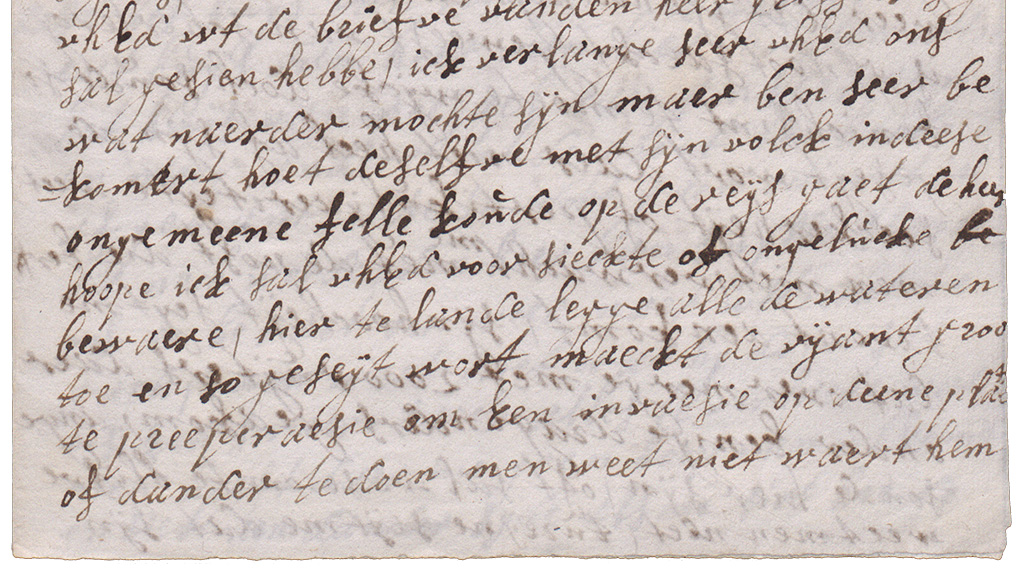 vhEd wt de briefve vanden heer
sal gesien hebbe, ick verlange seer vhEd ons
wat naerder mochte sijn maer ben seer be
-komert hoet deselfve met sijn volck in deese
ongemeene felle koude op de reijs gaet de heer
hoope ick sal vhEd voor sieckte of ongelucke be
bewaere, hier te lande legge alle de wateren
toe en so geseijt wort maeckt de vijant groo
te preeperaesie om Een invaesie op deene plae
of dander te doen men weet niet waert hem